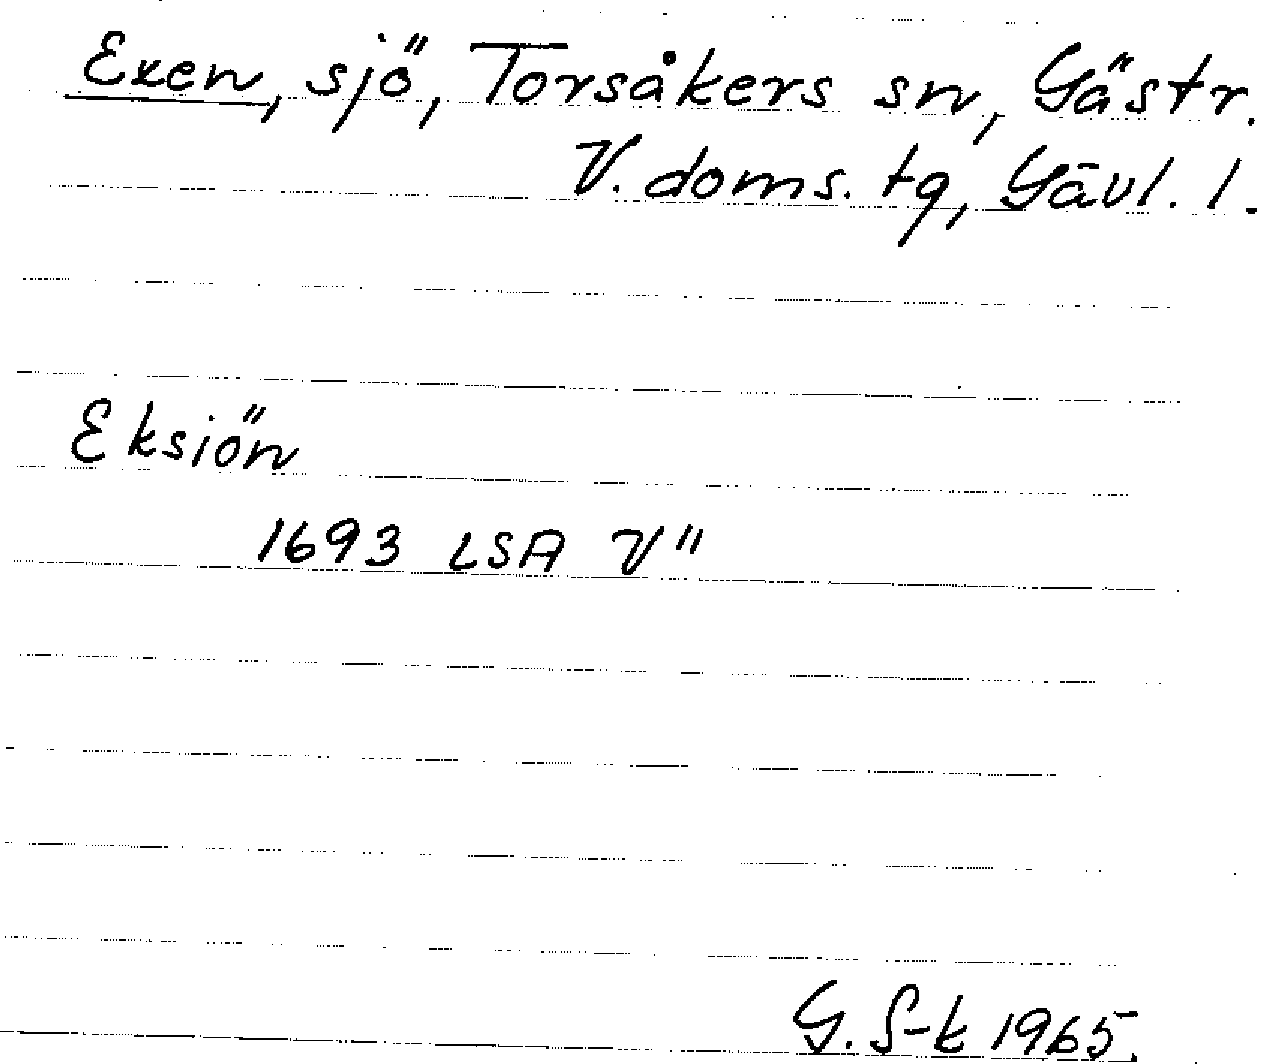 Exen, sjö, Torsåkers sn, Gästr.
V. doms. tg, Gävl. l.
Eksiön
1693 LSA V"
G. S-k 1965.